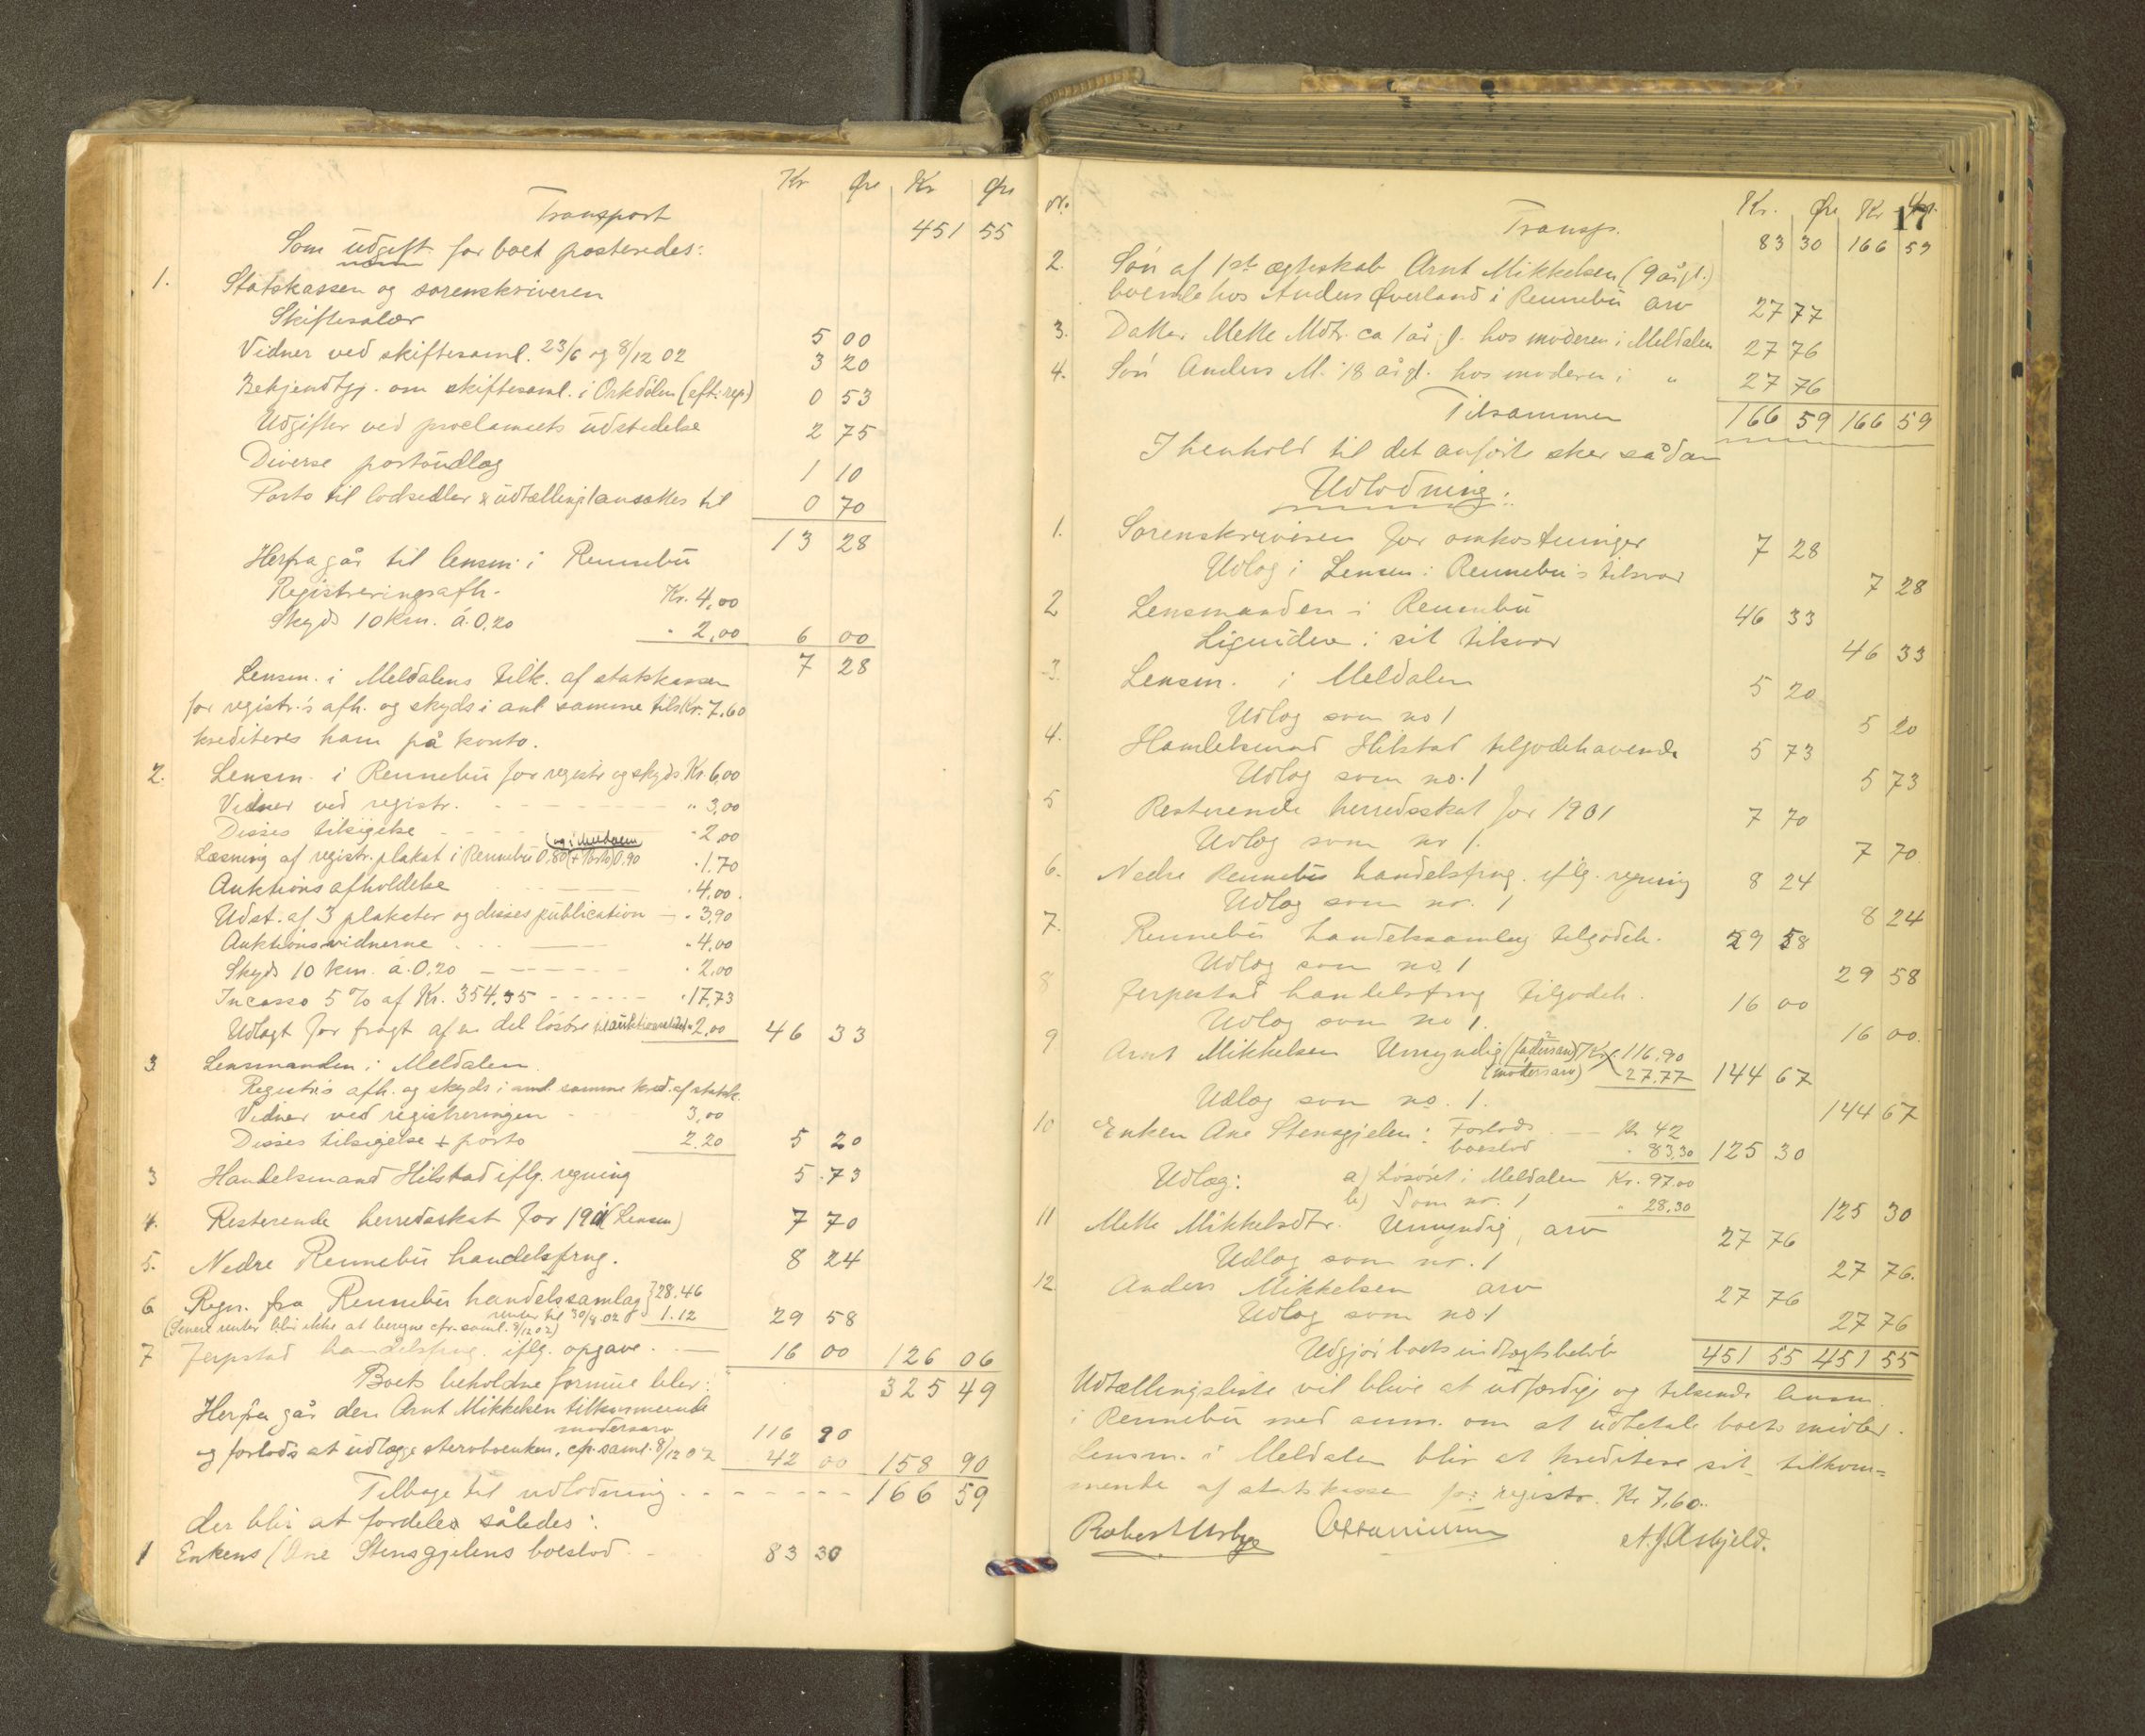 Kr Øre Kr Øre
Transport 451 55
Som udgift for boet posteredes:
1. Statskassen og sorenskriveren
Skiftesalær 5 00
Vidner ved skiftesaml. 23/6 og 8/12 02 3 20
Bekjendtgj. om skiftesaml. i Orkdølen (eft. rep) 0 53
Udgifter ved proclamaets udstedelse 2 75
Diverse portoudlæg 1 10
Porto til lodsedler & udtællingl ansættes til 0 70
13 28
Herfra går til lensm. i Rennebu
Registreringsafh. Kr. 4,00
Skyds 10 km. á 0,20 " 2,00 6 00
7 28
Lensm. i Meldalens tilk. af statskassen
for registr.'s afh. og skyds i anl samme tils Kr. 7.60
krediteres ham på konto.
2. Lensm. i Rennebu for registr og skyds Kr. 6,00
Vidner ved registr. " 3,00
Disses tilsigelse " 2,00
(og i Meldalen
Læsning af registr. plakat i Rennebu 0,80 (+ Porto) 0,90 " 1.70
Auktions afholdelse " 4,00.
Udst. af 3 plakater og disses publication " 3,90
Auktionsvidnerne " 4,00
Skyds 10 km. á 0,20 " 2,00
Incasso 5 % af Kr. 354,55 " 17,73
Udlagt for fragt af en del løsøre til auktionsstedet " 2,00 46 33
3 Lensmanden i Meldalen.
Registr's afh. og skyds i anl. samme kred. af statsk.
Vidner ved registreringen 3,00
Disses tilsigelse + porto 2.20 5 20
3 Handelsmand Hilstad iflg. regning 5.73
4. Resterende herredsskat for 1901 (Lensm) 7 70
5. Nedre Rennebu handelsfrng. 8 24
6 Regn. fra Rennebu handelssamlag 28.46
renter til 30/4 02 1.12 29 58
(Senere renter blir ikke at beregne cfr. saml. 8/12 02)
7 Jerpstad handelsfrng. iflg. opgave. 16 00 126 06
Boets beholdne formue blir: 325 49
Herfra går den Arnt Mikkelsen tilkommende
mødrearv 116 90
og forlods at udlægge stervboenken, cfr. saml. 8/12 02 42 00 158 90
Tilbage til udlodning 166 59
der blir at fordeles således:
1 Enkens (Ane Stensgjelens boeslod 83 30
No. Kr. Øre Kr Øre
17
Transp. 83 30 166 59
2. Søn af 1ste ægteskab Arnt Mikkelsen (9 år gl.)
boende hos Anders Øverland i Rennebu arv 27 77
3. Datter Mette Mdtr. ca 1 år g. hos moderen i Meldalen 27 76
4. Søn Anders M. 18 år gl. hos moderen i " 27 76
Tilsammen 166 59 166 59
I henhold til det anførte sker sådan
Udlodning:
1. Sorenskriveren for omkostninger 7 28
Udlæg i Lensm. i Rennebu's tilsvar 7 28
2 Lensmanden i Rennebu 46 33
Liquidere i sit tilsvar 46 33
3. Lensm. i Meldalen 5 20
Udlæg som no 1 5 20
4. Handelsmand Hilstad tilgodehavende 5 73
Udlæg som no. 1 5 73
5 Resterende herredsskat for 1901 7 70
Udlæg som nr 1. 7 70
6. Nedre Rennebu handelsfrng. iflg. regning 8 24
Udlæg som nr. 1 8 24
7. Rennebu handelssamlag tilgodeh. 29 58
Udlæg som no. 1 29 58
8 Jerpestad handelsfrng tilgodeh. 16 00
Udlæg som no 1. 16 00.
9. Arnt Mikkelsen Umyndig (fædrearv) Kr. 116,90
(mødrearv) 27,77 144 67
Udlæg som no. 1. 144 67
10 Enken Ane Stensgjelen: Forlods Kr 42
boeslod " 83,30 125 30
Udlæg: a) Løsøret i Meldalen Kr. 97.00
b) Som nr. 1 " 28,30 125 30
11 Mette Mikkelsdtr. Umyndig, arv 27 76
Udlæg som nr. 1 27 76.
12. Anders Mikkelsen arv 27 76
Udlæg som no. 1 27 76
Udgjør boets indtægtsbeløb 451 55 451 55
Udtællingsliste vil blive at udfærdige og tilsende lensm.
i Rennebu med anm. om at udbetale boets midler.
Lensm. i Meldalen blir at kreditere sit tilkom=
mende af statskassen for registr. Kr 7,60.
Robert Urbye A. J. Asbjeld.